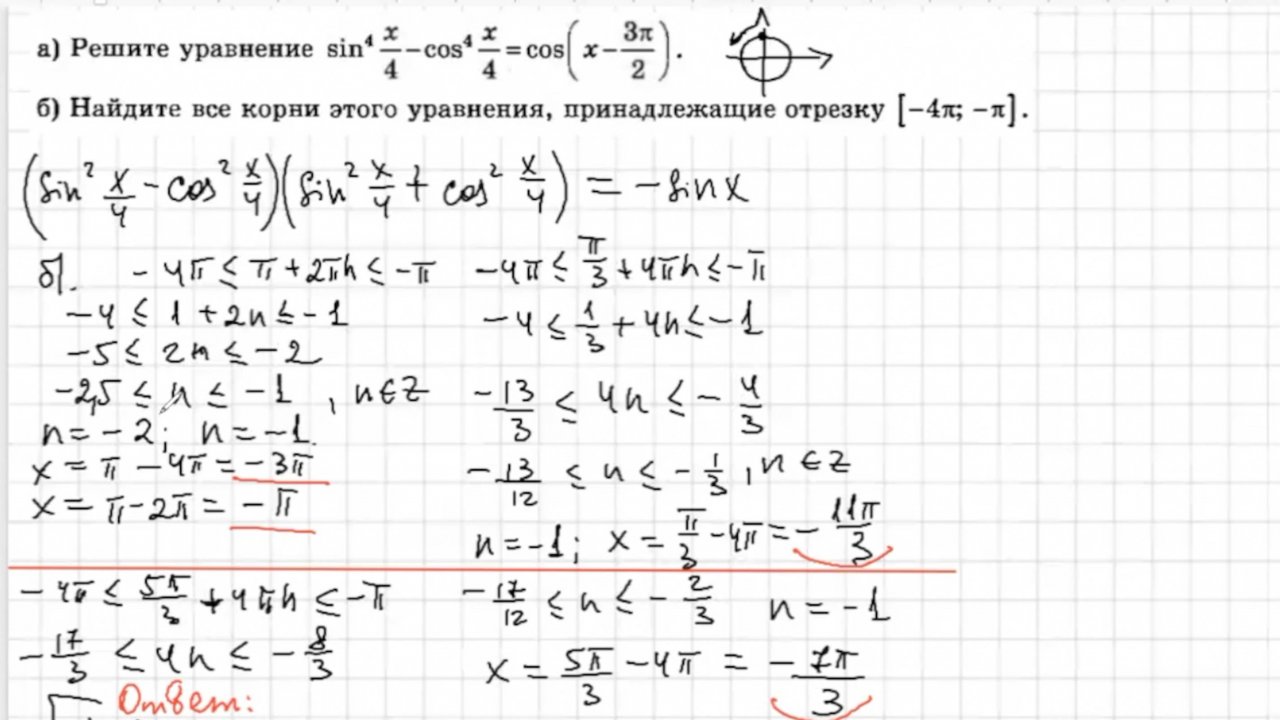 а) Решите уравнение sin⁴ x/4 − cos⁴ x/4 = cos(x − 3π/2).
б) Найдите все корни этого уравнения, принадлежащие отрезку [−4π; −π].
(sin² x/4 − cos² x/4)(sin² x/4 + cos² x/4) = −sinx
б). −4π ≤ π + 2πn ≤ −π
−4 ≤ 1 + 2n ≤ −1
−5 ≤ 2n ≤ −2
−2,5 ≤ n ≤ −1, n∈Z
n = −2; n = −1.
x = π − 4π = −3π
x = π − 2π = −π
−4π ≤ π/3 + 4πn ≤ −π
−4 ≤ 1/3 + 4n ≤ −1
−13/3 ≤ 4n ≤ −4/3
−13/12 ≤ n ≤ −1/3, n∈Z
n = −1; x = π/3 − 4π = −11π/3
−4π ≤ 5π/3 + 4πn ≤ −π
−17/3 ≤ 4n ≤ −8/3
−17/12 ≤ n ≤ −2/3 n = −1
x = 5π/3 − 4π = −7π/3
Ответ: